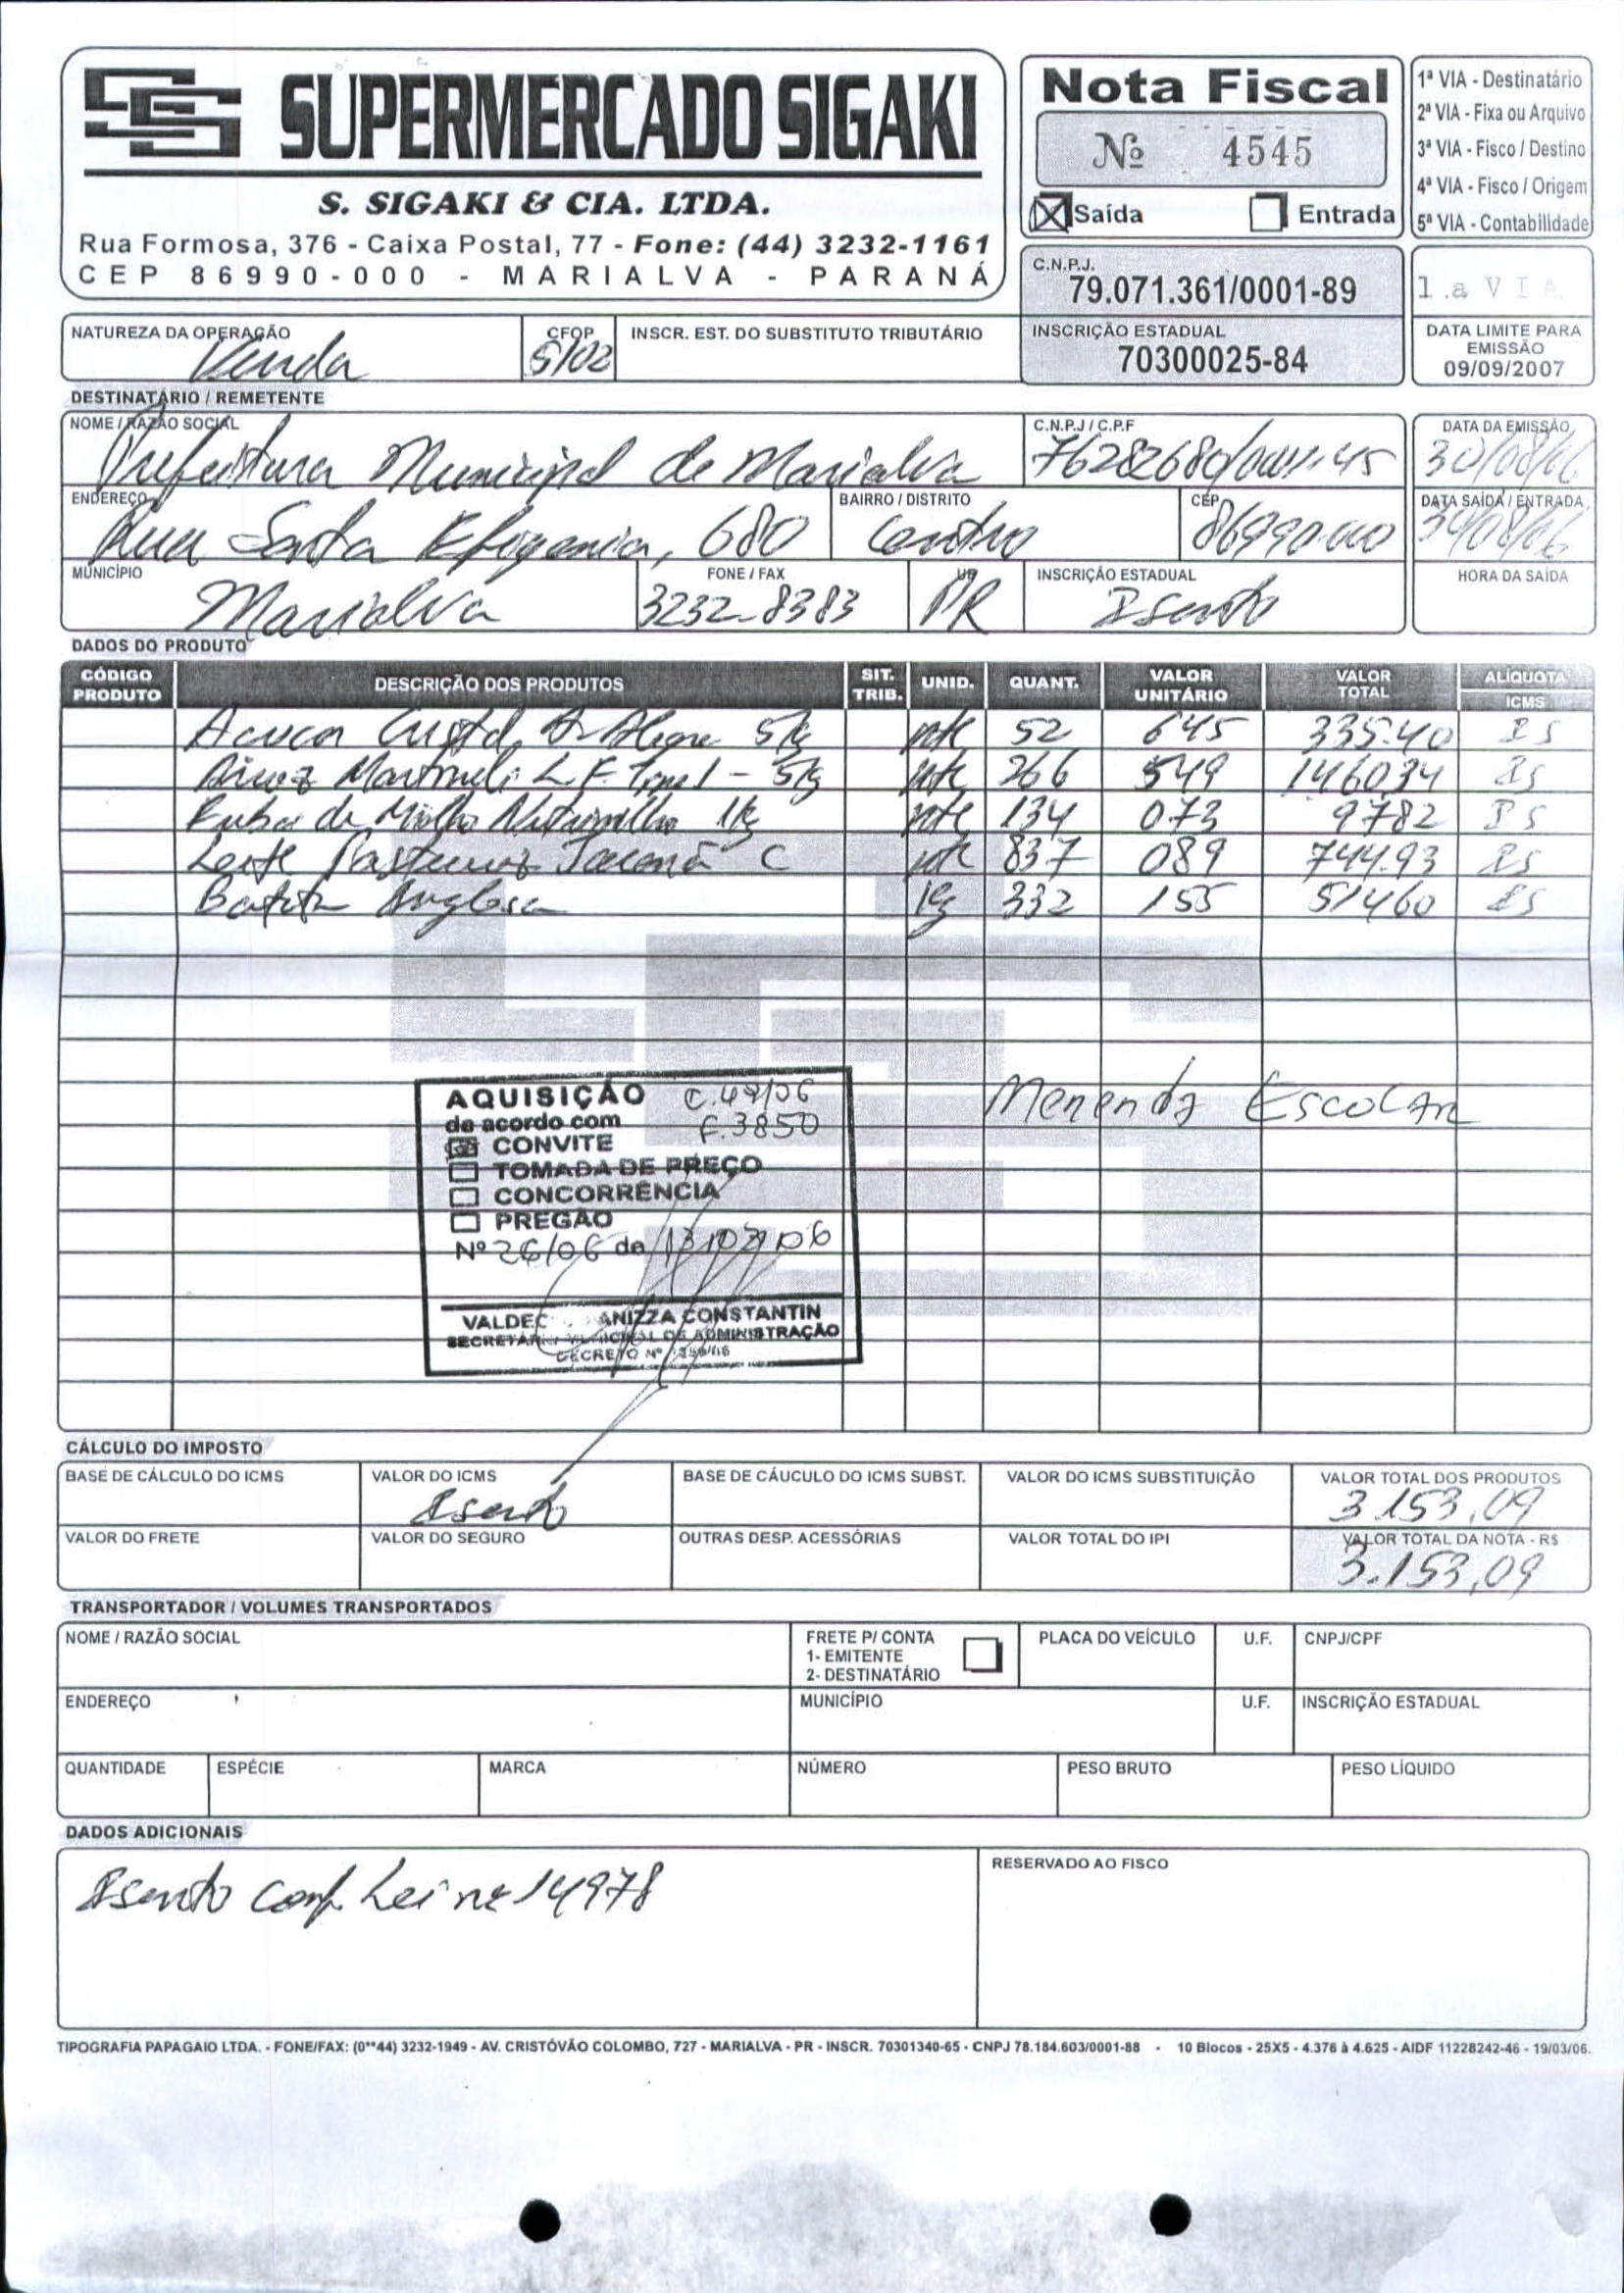 SUPERMERCADO SIGAKI
S. SIGAKI & CIA. LTDA.
Rua Formosa, 376 - Caixa Postal, 77 - Fone: (44) 3232-1161
CEP 86990-000 - MARIALVA - PARANÁ
Nota Fiscal
Nº 4545
Saída Entrada
1ª VIA - Destinatário
2ª VIA - Fixa ou Arquivo
3ª VIA - Fisco / Destino
4ª VIA - Fisco / Origem
5ª VIA - Contabilidade
C.N.P.J.
79.071.361/0001-89
1.a VIA
NATUREZA DA OPERAÇÃO
Venda
CFOP
5102
INSCR. EST. DO SUBSTITUTO TRIBUTÁRIO
INSCRIÇÃO ESTADUAL
70300025-84
DATA LIMITE PARA
EMISSÃO
09/09/2007
DESTINATÁRIO / REMETENTE
NOME / RAZÃO SOCIAL
Prefeitura Municipal de Marialva
C.N.P.J / C.P.F
76282680/0001-45
DATA DA EMISSÃO
30/08/06
ENDEREÇO
Rua Santa Efigenia, 680
BAIRRO / DISTRITO
Centro
CEP
86990.000
DATA SAÍDA / ENTRADA
30/08/06
MUNICÍPIO
Marialva
FONE / FAX
3232-8383
UF
PR
INSCRIÇÃO ESTADUAL
Isento
HORA DA SAÍDA
DADOS DO PRODUTO
CÓDIGO PRODUTO DESCRIÇÃO DOS PRODUTOS SIT. TRIB. UNID. QUANT. VALOR UNITÁRIO VALOR TOTAL ALÍQUOTA ICMS
Acucar Cristal Alegre 5kg pte 52 645 335.40 IS
Arroz L.F. - 5kg pte 266 549 146034 IS
Fuba de Milho Nutrimilho 1kg pte 134 073 9782 IS
Leite Pasteuriz C pte 837 089 744.93 IS
Batata Inglesa Kg 332 155 51460 IS
Merenda Escolar
AQUISIÇÃO C.49/06
de acordo com F.3850
CONVITE
TOMADA DE PREÇO
CONCORRÊNCIA
PREGÃO
Nº 26/06 de 13/03/06
VALDEC ANIZZA CONSTANTIN
SECRETÁRIO MUNICIPAL DE ADMINISTRAÇÃO
DECRETO Nº
CÁLCULO DO IMPOSTO
BASE DE CÁLCULO DO ICMS
VALOR DO ICMS
Isento
BASE DE CÁUCULO DO ICMS SUBST.
VALOR DO ICMS SUBSTITUIÇÃO
VALOR TOTAL DOS PRODUTOS
3.153,09
VALOR DO FRETE
VALOR DO SEGURO
OUTRAS DESP. ACESSÓRIAS
VALOR TOTAL DO IPI
VALOR TOTAL DA NOTA - R$
3.153,09
TRANSPORTADOR / VOLUMES TRANSPORTADOS
NOME / RAZÃO SOCIAL
FRETE P/ CONTA
1- EMITENTE
2- DESTINATÁRIO
PLACA DO VEÍCULO
U.F.
CNPJ/CPF
ENDEREÇO
MUNICÍPIO
U.F.
INSCRIÇÃO ESTADUAL
QUANTIDADE
ESPÉCIE
MARCA
NÚMERO
PESO BRUTO
PESO LÍQUIDO
DADOS ADICIONAIS
Isento conf. Lei nº 14978
RESERVADO AO FISCO
TIPOGRAFIA PAPAGAIO LTDA. - FONE/FAX: (0**44) 3232-1949 - AV. CRISTÓVÃO COLOMBO, 727 - MARIALVA - PR - INSCR. 70301340-65 - CNPJ 78.184.603/0001-88 - 10 Blocos - 25X5 - 4.376 à 4.625 - AIDF 11228242-46 - 19/03/06.